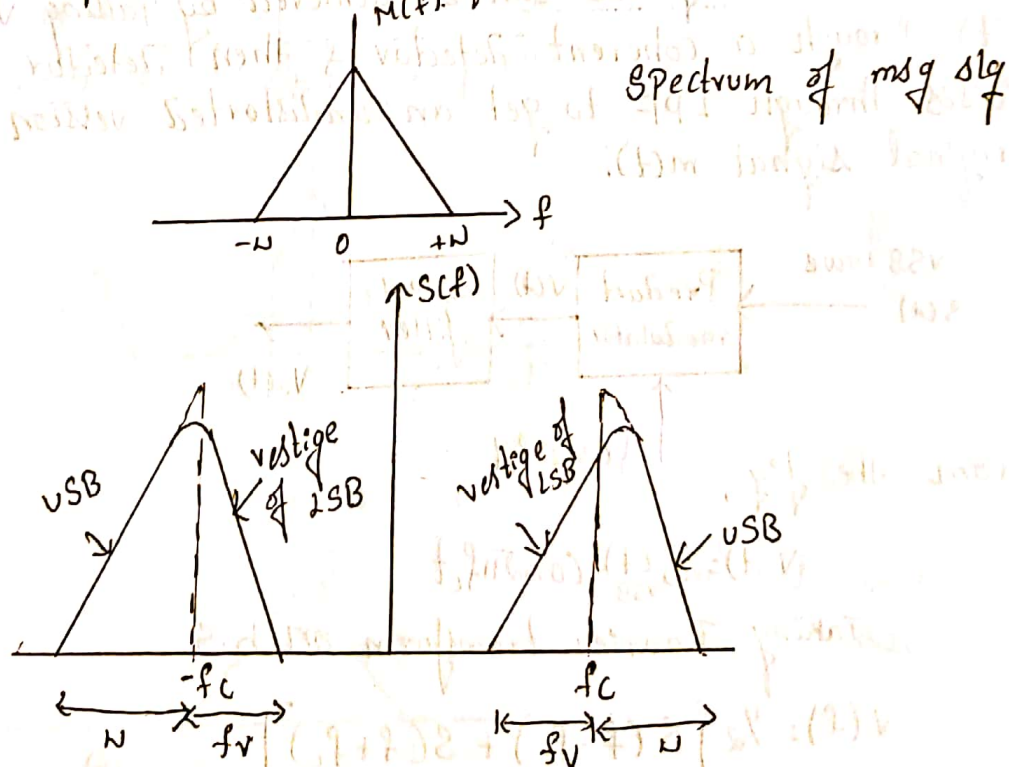 M(f)
Spectrum of msg slg
-W 0 +W f
S(f)
USB
vestige
of LSB
vestige of
LSB
USB
-fc
fc
W
fv
fv
W